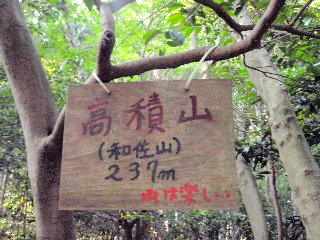 高積山
(和性山)
237m
山は楽しい